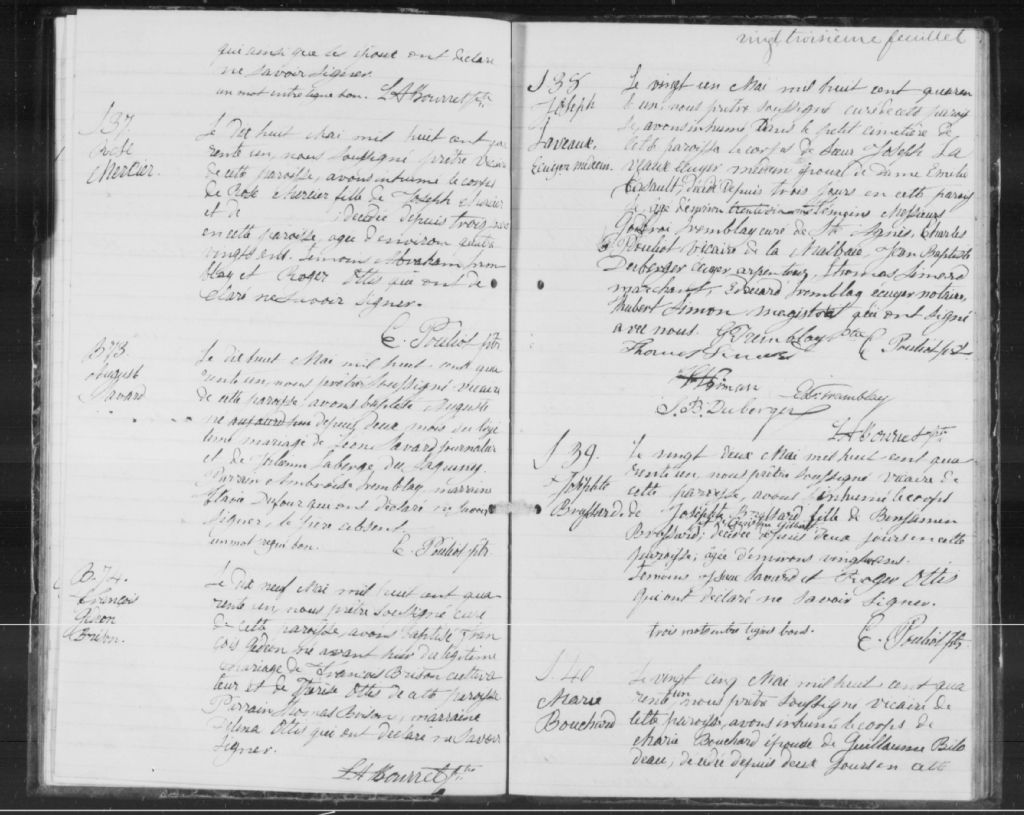 qui ainsi que les époux ont déclaré
ne savoir signer.
un mot entre ligne bon. LA Bourret ptre
S 37.
Rose
Mercier.
Le dix huit Mai mil huit cent qua
rente un, nous soussigné prêtre vicaire
de cette paroisse, avons inhumé le corps
de Rose Mercier fille de Joseph Mercier
et de ; décédée depuis trois jours
en cette paroisse, agée d'environ quatre
vingts ans. Témoins Abraham Trem
blay et Roger Otis qui ont dé
claré ne savoir signer.
C. Pouliot ptre
B 73.
Auguste
Savard
Le dix huit Mai mil huit cent qua
rente un, nous prêtre soussigné vicaire
de cette paroisse avons baptisé Auguste
né aujourd'hui depuis deux mois du légi
time mariage de Léon Savard journalier
et de Laberge, du Saguenay.
Parrain Ambroise Tremblay, marraine
Flavie Dufour qui ont déclaré ne savoir
signer, le père absent.
un mot rayé bon. C. Pouliot ptre
B. 74.
François
Gédéon
Brison.
Le dix neuf Mai mil huit cent qua
rente un, nous prêtre soussigné curé
de cette paroisse, avons baptisé Fran
cois Gédéon né avant hier du légitime
mariage de François Brison cultiva
teur et de Otis de cette paroisse
Parrain Thomas Brison, marraine
Delina Otis qui ont déclaré ne savoir
signer.
LA Bourret ptre
vingt troisième feuillet
S 38
Joseph
Laveaux,
Ecuyer médecin.
Le vingt un Mai mil huit cent quaran
te un, nous prêtre soussigné curé de cette parois
se, avons inhumé dans le petit cimetière de
cette paroisse le corps de Sieur Joseph La
veaux écuyer médecin époux de Dame Emelie
décédé depuis trois jours en cette parois
se, agé d'environ témoins Messieurs
Godfroi Tremblay curé de Ste Agnès, Charles
Pouliot vicaire de la Malbaie, Jean Baptiste
Duberger écuyer arpenteur, Thomas Simard
marchand, Edouard Tremblay écuyer notaire,
Hubert Simon magistrat qui ont signé
avec nous. G Tremblay Ptre C. Pouliot ptre
Thomas Simard
H Simon Ed. Tremblay
J. B. Duberger
LA Bourret ptre
S 39.
Josephte
Brassard.
Le vingt deux Mai mil huit cent qua
rente un, nous prêtre soussigné vicaire de
cette paroisse, avons inhumé le corps
de Josephte Brassard fille de Benjamin
Brassard; décédée depuis deux jours en cette
paroisse; agée d'environ vingt ans.
Temoins Savard et Roger Otis
qui ont déclaré ne savoir signer.
trois mots entre lignes bons. C. Pouliot ptre
S. 40
Marie
Bouchard
Le vingt cinq Mai mil huit cent qua
rente un nous prêtre soussigné vicaire de
cette paroisse, avons inhumé le corps de
Marie Bouchard épouse de Guillaume Bilo
deau, décédée depuis deux jours en cette